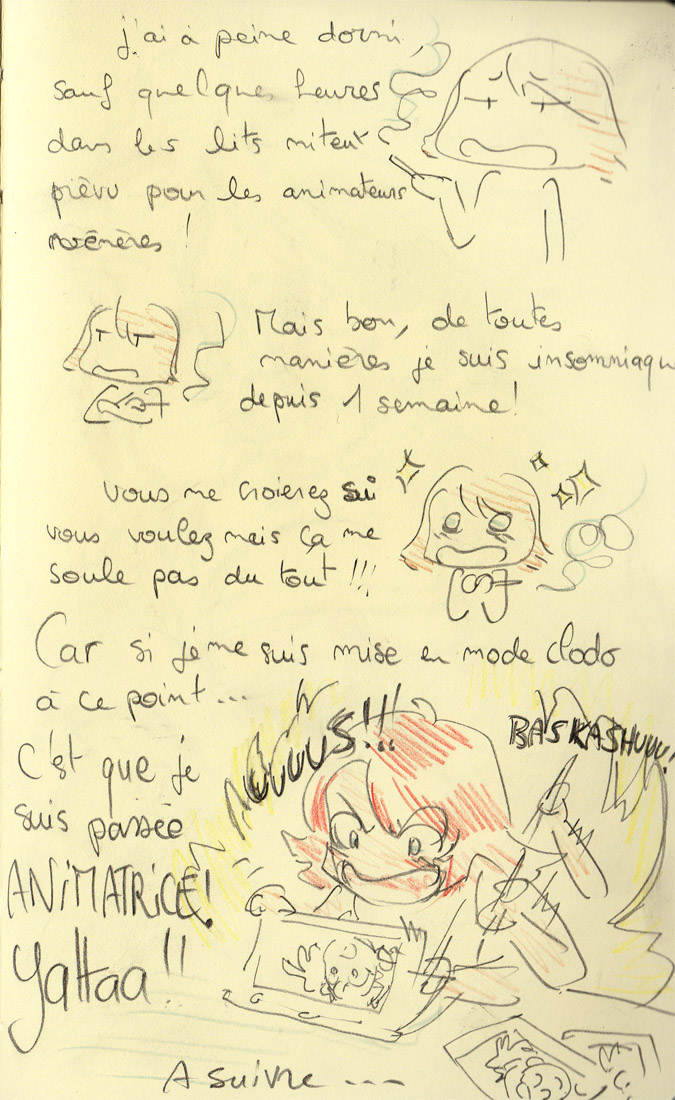 j'ai à peine dormi,
sauf quelques heures
dans les lits miteux
prévu pour les animateurs
Mais bon, de toutes
manières je suis insomniaqu
depuis 1 semaine!
Vous me croierez si
vous voulez mais ça me
soule pas du tout !!!
Car si je me suis mise en mode clodo
à ce point...
C'est que je
suis passée
ANIMATRICE!
Yattaa!!
NUUUUS!!!
BASKASHUUU!
A suivre ...